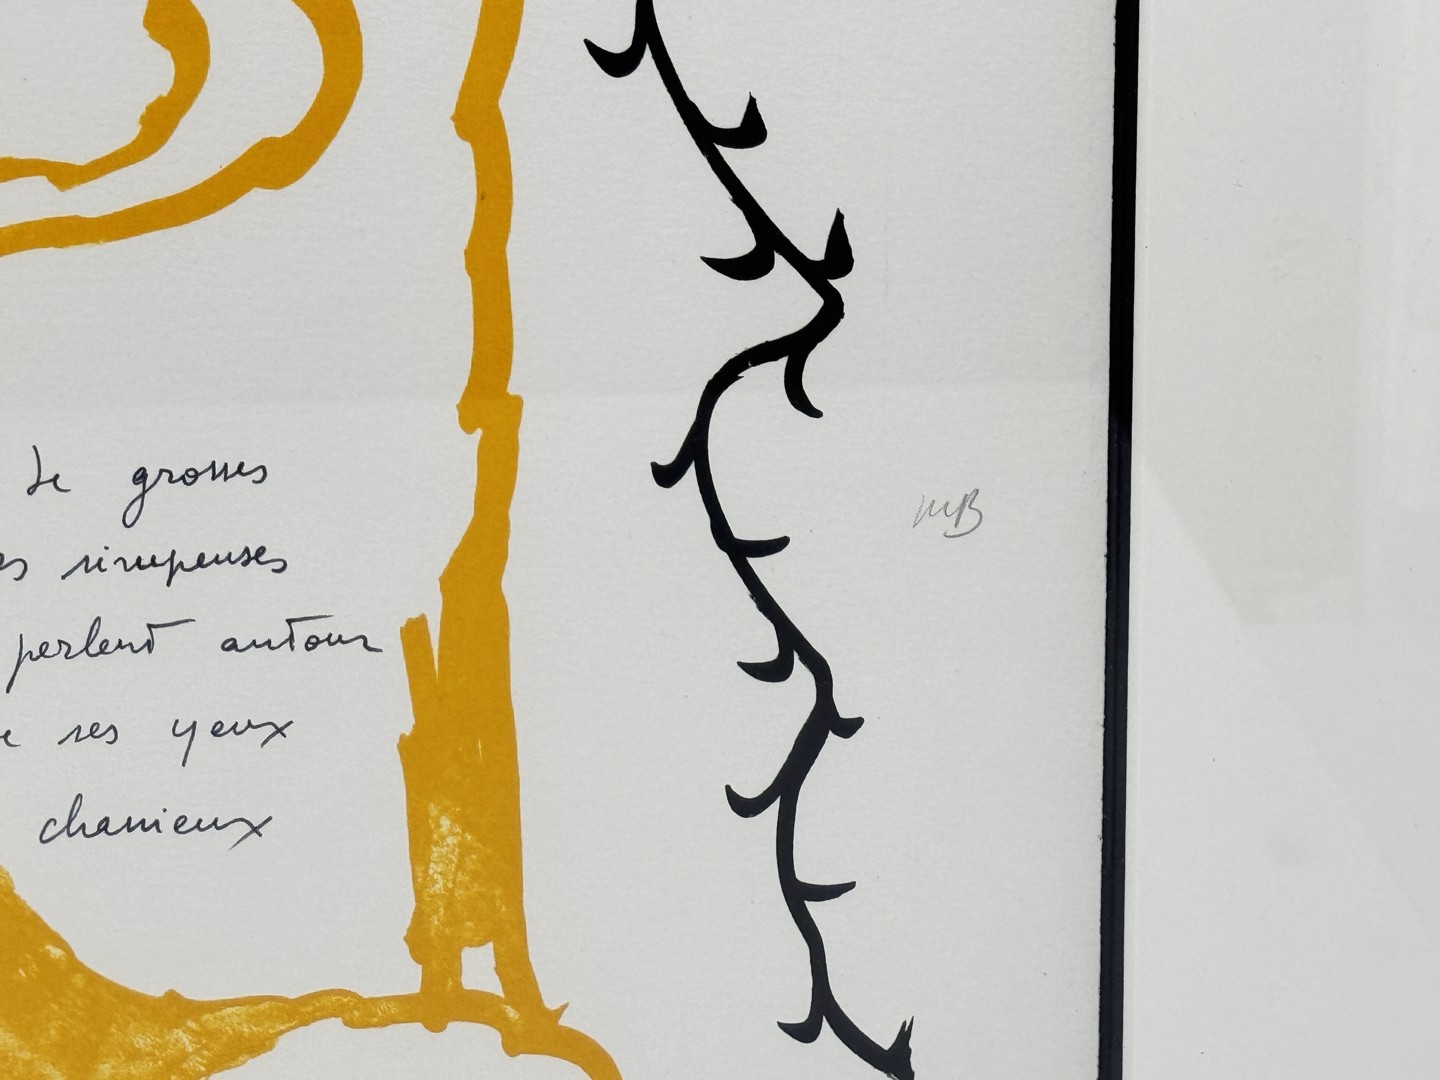 de grosses
es sirupeuses
perlent autour
e ses yeux
chassieux
MB